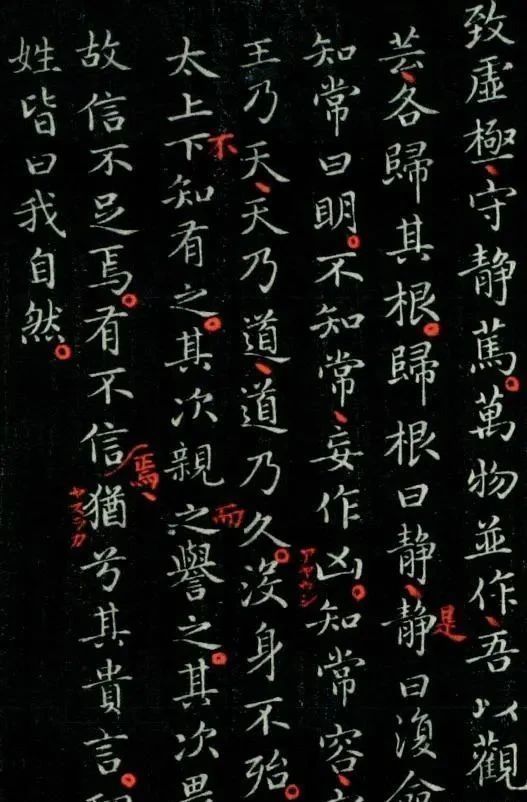 致虛極、守静篤。萬物並作、吾以觀
芸、各歸其根。歸根曰静、静曰復命
是
知常曰明。不知常、妄作凶。知常容、
アヤウシ
王乃天、天乃道、道乃久。没身不殆。
太上下知有之。其次親之譽之。其次畏
不
而
故信不足焉。有不信猶兮其貴言。
焉、
姓皆曰我自然。